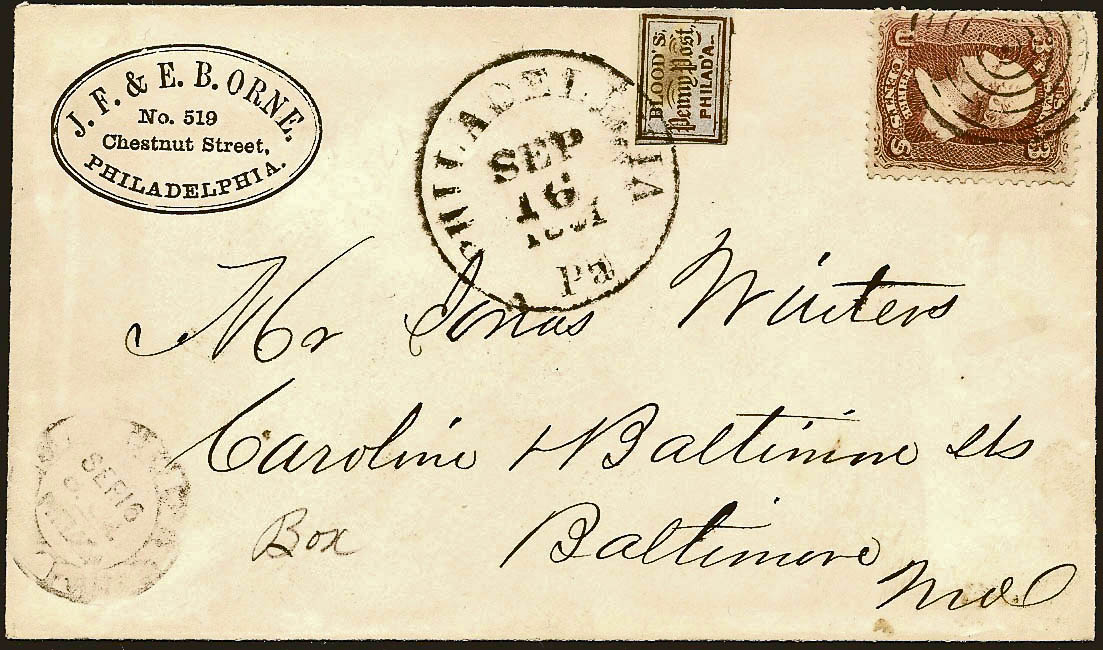 J. F. & E. B. ORNE.
No. 519
Chestnut Street,
PHILADELPHIA.
PHILADELPHIA
SEP
16
1861
Pa
BLOOD'S
Penny Post,
PHILAD'A
U
3
S
3
Mr Jonas Winters
Caroline & Baltimore Sts
Box
Baltimore
Md
SEP 16